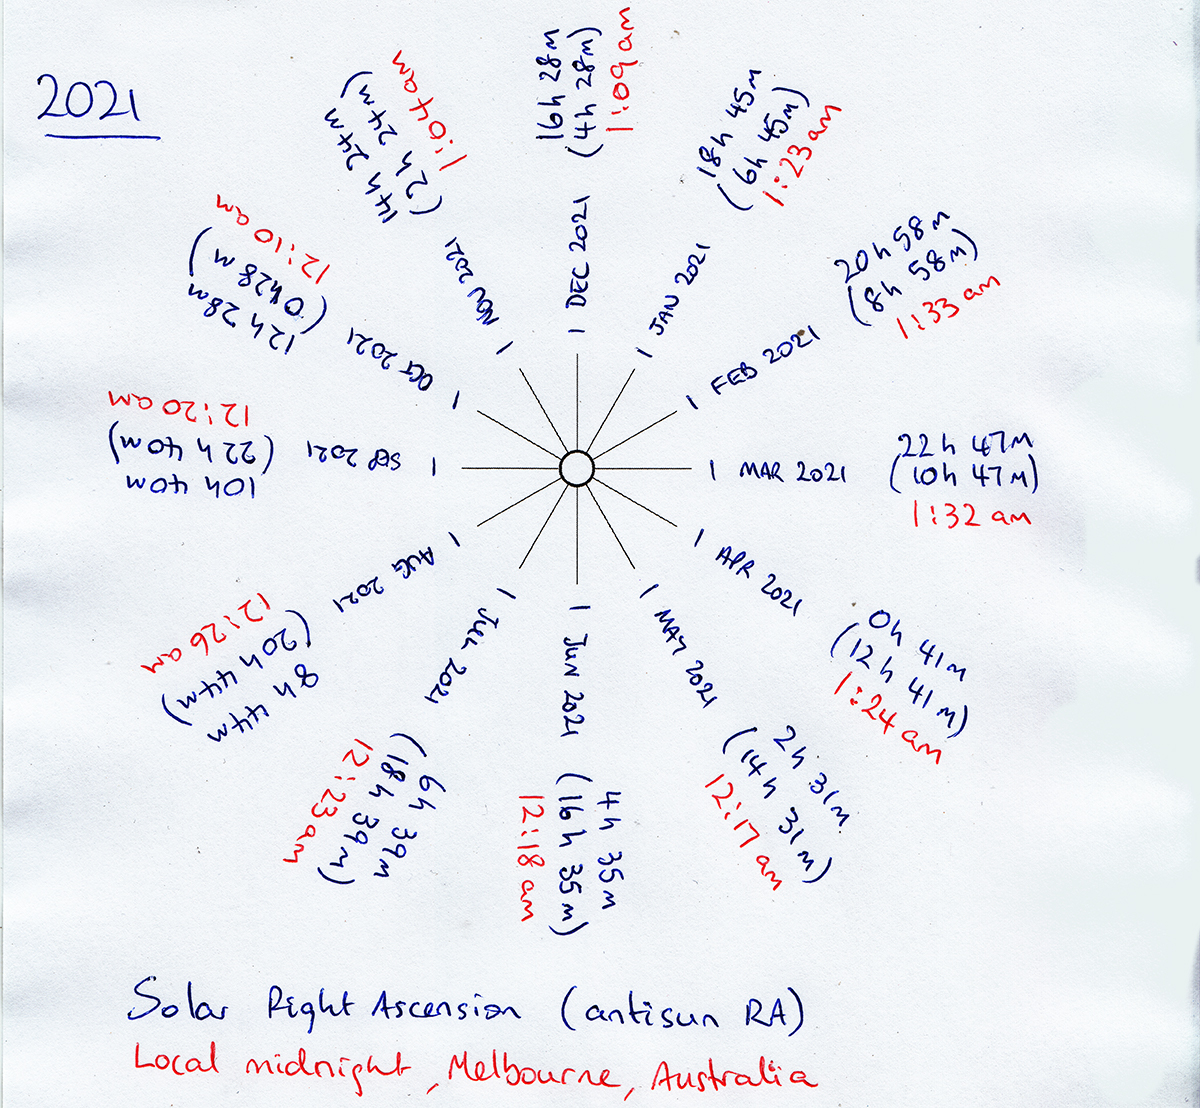 2021
1 DEC 2021
16h 28m
(4h 28m)
1:09 am
1 JAN 2021
18h 45m
(6h 45m)
1:23 am
1 FEB 2021
20h 58m
(8h 58m)
1:33 am
1 MAR 2021
22h 47m
(10h 47m)
1:32 am
1 APR 2021
0h 41m
(12h 41m)
1:24 am
1 MAY 2021
2h 31m
(14h 31m)
12:17 am
1 JUN 2021
4h 35m
(16h 35m)
12:18 am
1 JUL 2021
6h 39m
(18h 39m)
12:23 am
1 AUG 2021
8h 44m
(20h 44m)
12:26 am
1 SEP 2021
10h 40m
(22h 40m)
12:20 am
1 OCT 2021
12h 28m
(0h28m)
12:10 am
1 NOV 2021
14h 24m
(2h 24m)
1:04 am
Solar Right Ascension (antisun RA)
Local midnight, Melbourne, Australia